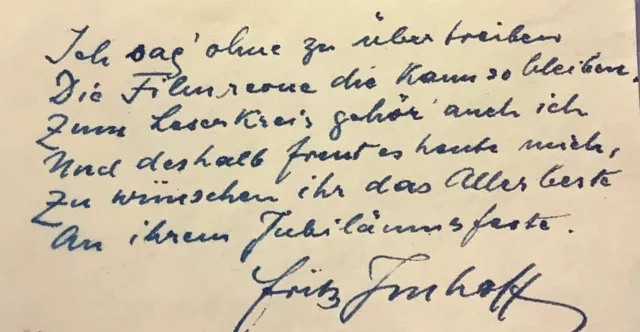 Ich sag' ohne zu übertreiben
Die Filmrevue die kann so bleiben.
Zum Leserkreis gehör' auch ich
Und deshalb freut es heute mich,
Zu wünschen ihr das Allerbeste
An ihrem Jubiläumsfeste.
Fritz Imhoff